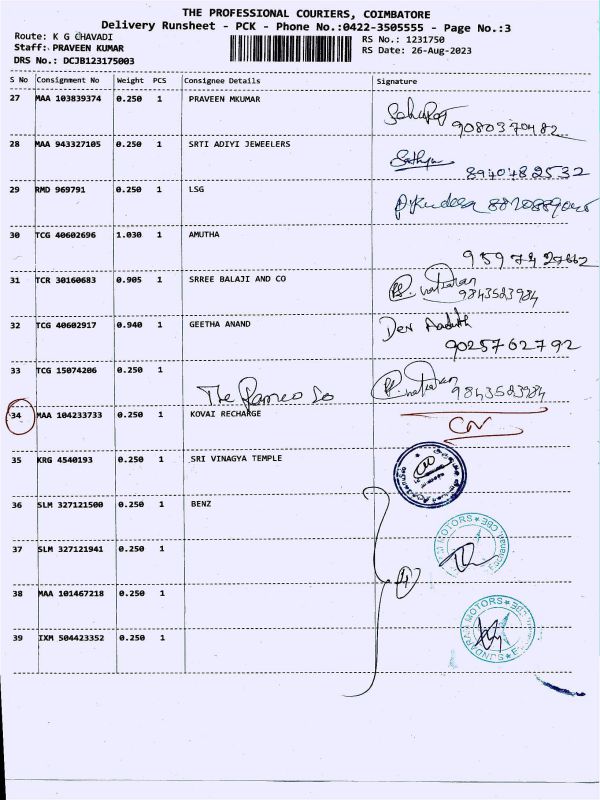 THE PROFESSIONAL COURIERS, COIMBATORE
Delivery Runsheet - PCK - Phone No.:0422-3505555 - Page No.:3
Route: K G CHAVADI
RS No.: 1231750
Staff: PRAVEEN KUMAR
RS Date: 26-Aug-2023
DRS No.: DCJB123175003
S No Consignment No Weight PCS Consignee Details Signature
27 MAA 103839374 0.250 1 PRAVEEN MKUMAR
9080370482
28 MAA 943327105 0.250 1 SRTI ADIYI JEWEELERS
Sathya
8940482532
29 RMD 969791 0.250 1 LSG
30 TCG 40602696 1.030 1 AMUTHA
9597427662
31 TCR 30160683 0.905 1 SRREE BALAJI AND CO
9843523984
32 TCG 40602917 0.940 1 GEETHA ANAND
Dev
9025762792
33 TCG 15074206 0.250 1
The Ramco
9843523984
34 MAA 104233733 0.250 1 KOVAI RECHARGE
CN
35 KRG 4540193 0.250 1 SRI VINAGYA TEMPLE
36 SLM 327121500 0.250 1 BENZ
37 SLM 327121941 0.250 1
MOTORS ★ CBE
38 MAA 101467218 0.250 1
4
39 IXM 504423352 0.250 1
SUNDARAM MOTORS ★ CBE